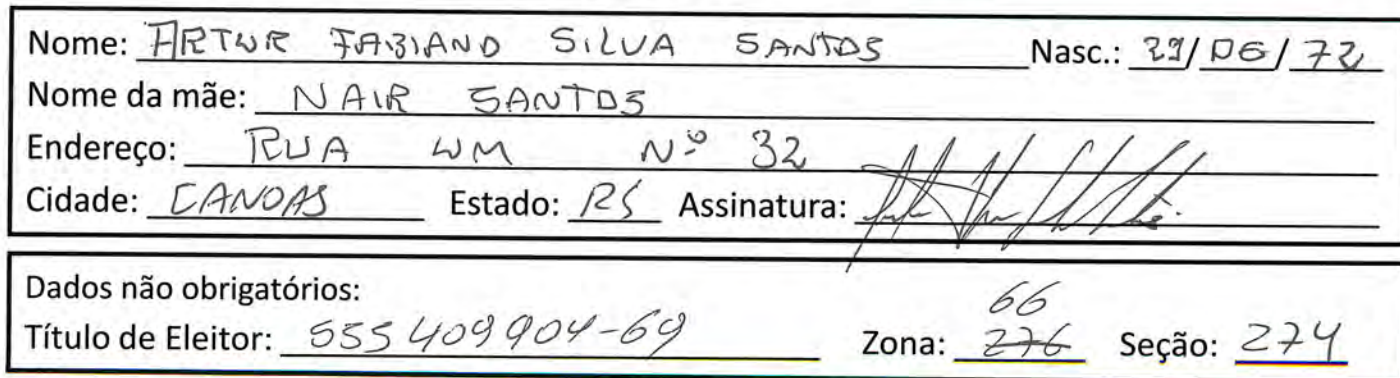 Nome: ARTUR FABIANO SILVA SANTOS Nasc.: 29/06/72
Nome da mãe: NAIR SANTOS
Endereço: RUA WM Nº 32
Cidade: CANOAS Estado: RS Assinatura:
Dados não obrigatórios:
66
Título de Eleitor: 555409904-69 Zona: 276 Seção: 274